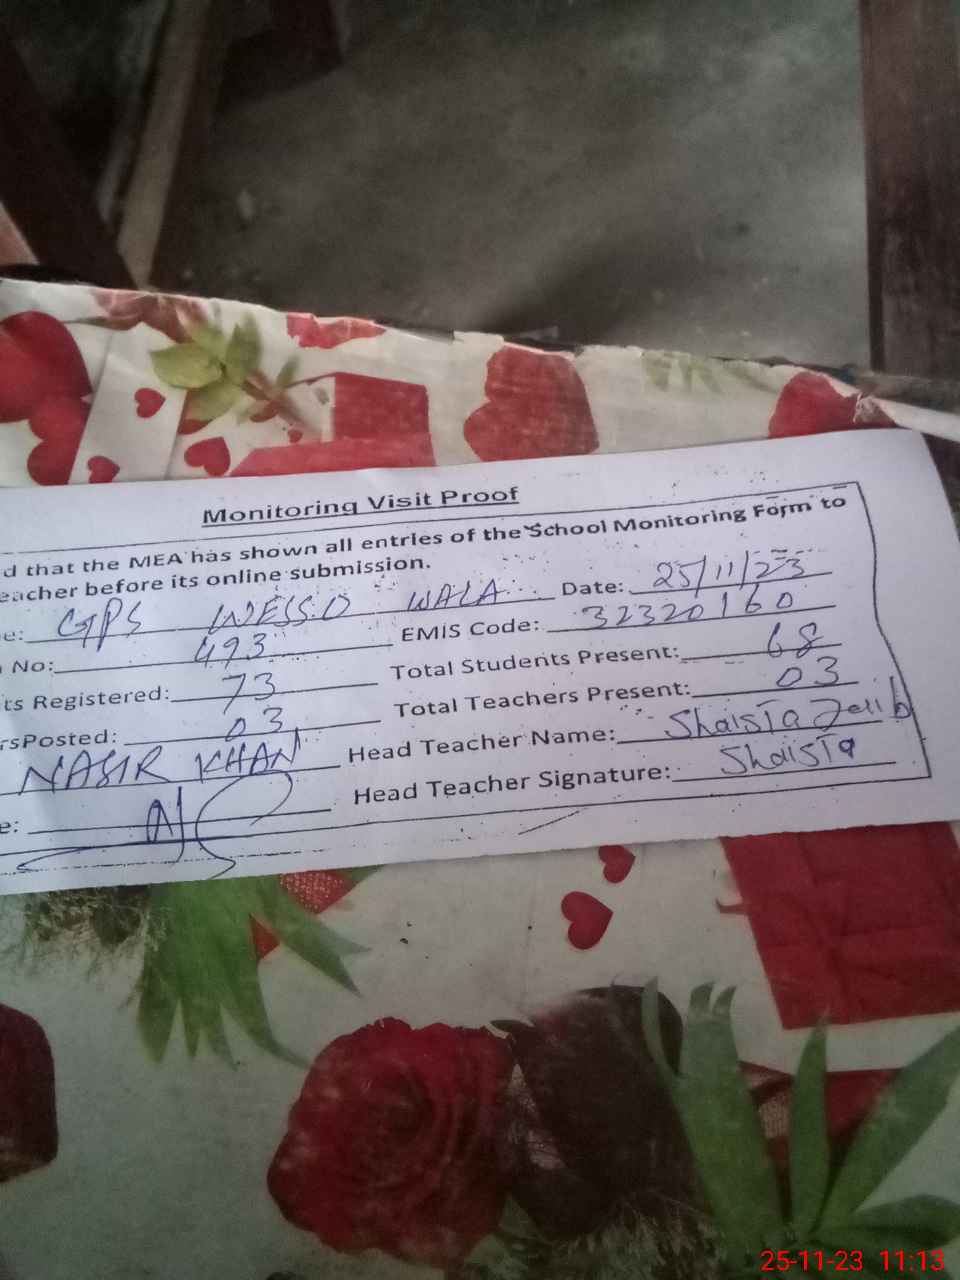 Monitoring Visit Proof
d that the MEA has shown all entries of the School Monitoring Form to
eacher before its online submission.
e: GPS WESSO WALA Date: 25/11/23
No: 493 EMIS Code: 32320160
ts Registered: 73 Total Students Present: 68
rsPosted: 03 Total Teachers Present: 03
NASIR KHAN Head Teacher Name: Shaista
e: Head Teacher Signature: Shaista
25-11-23 11:13